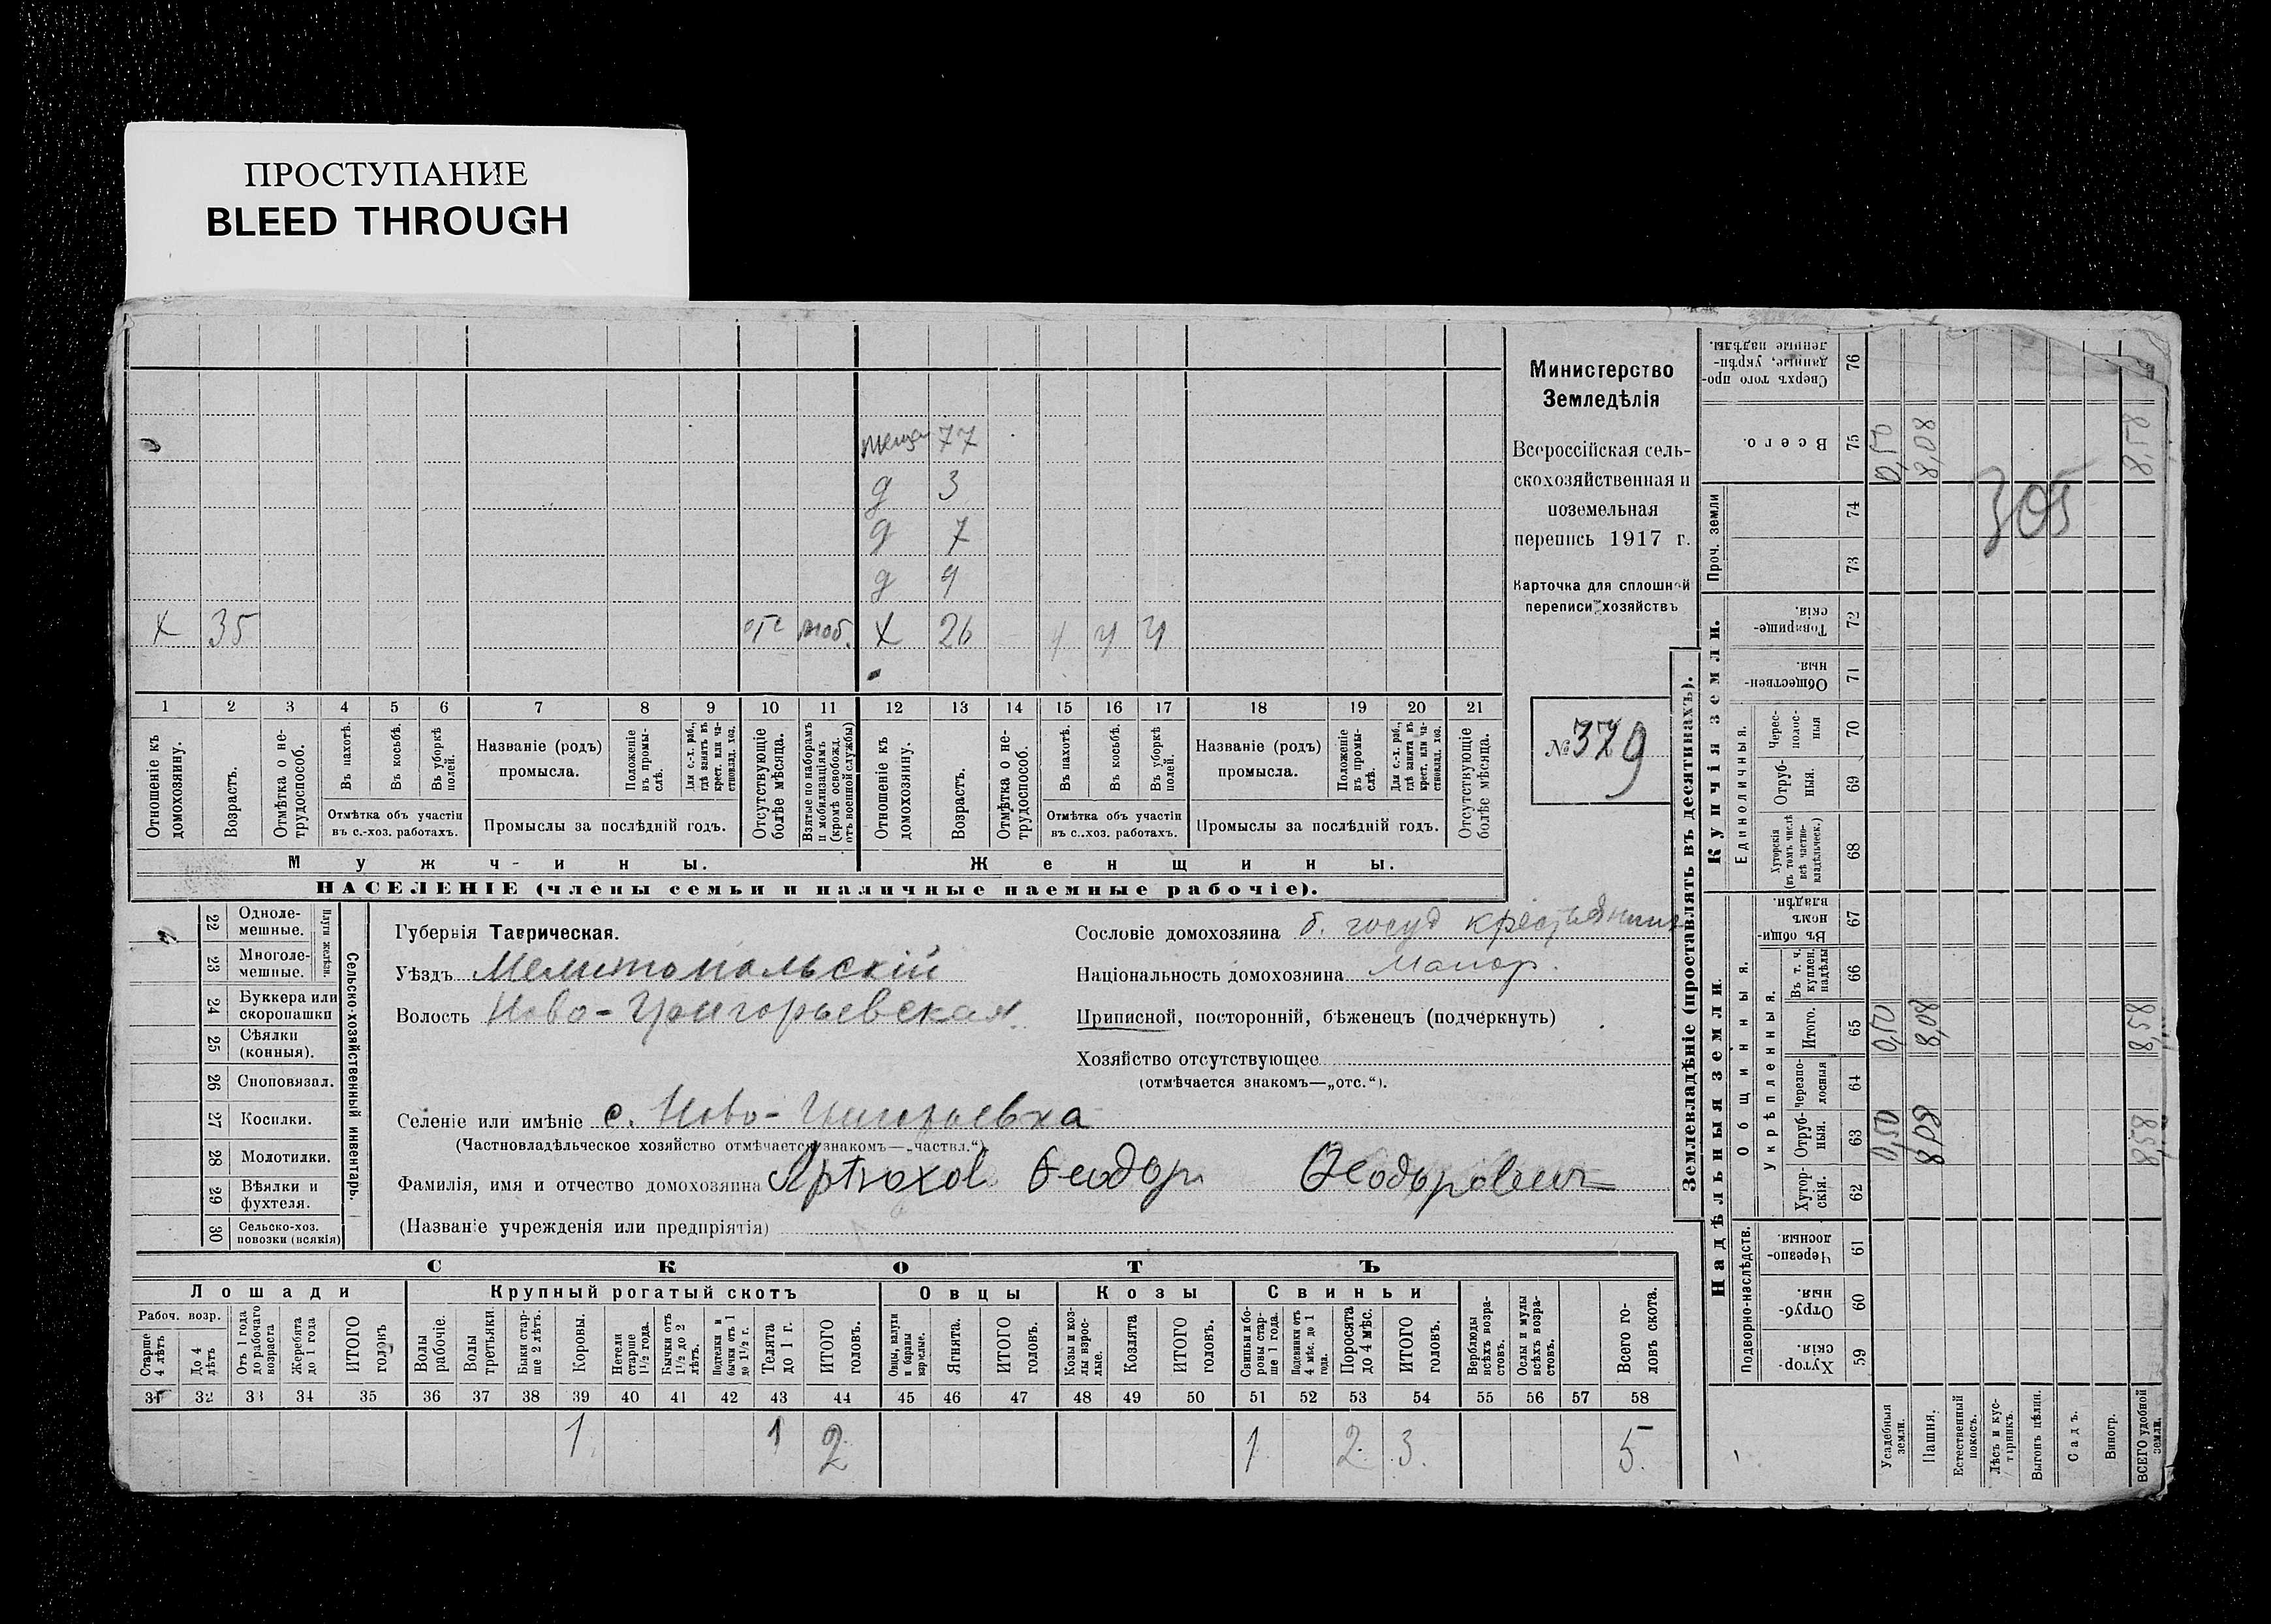 ПРОСТУПАНИЕ
BLEED THROUGH
77
д 3
д 7
д 4
х 35 отс моб. х 26 ч ч ч
1 2 3 4 5 6 7 8 9 10 11 12 13 14 15 16 17 18 19 20 21
Отношеніе къ домохозяину.
Возрастъ.
Отмѣтка о нетрудоспособ.
Въ пахотѣ.
Въ косьбѣ.
Въ уборкѣ полей.
Отмѣтка объ участіи въ с.-хоз. работахъ.
Названіе (родъ) промысла.
Положеніе въ промыслѣ.
Для с.-х. раб., гдѣ занятъ въ крест. или частновлад. хоз.
Промыслы за послѣдній годъ.
Отсутствующіе болѣе мѣсяца.
Взятые по наборамъ и мобилизаціямъ (кромѣ освобожд. отъ военной службы)
Отношеніе къ домохозяину.
Возрастъ.
Отмѣтка о нетрудоспособ.
Въ пахотѣ.
Въ косьбѣ.
Въ уборкѣ полей.
Отмѣтка объ участіи въ с.-хоз. работахъ.
Названіе (родъ) промысла.
Положеніе въ промыслѣ.
Для с.-х. раб., гдѣ занята въ крест. или частновлад. хоз.
Промыслы за послѣдній годъ.
Отсутствующіе болѣе мѣсяца.
Мужчины.
Женщины.
НАСЕЛЕНІЕ (члены семьи и наличные наемные рабочіе).
Министерство
Земледѣлія
Всероссійская сель-
скохозяйственная и
поземельная
перепись 1917 г.
Карточка для сплошной
переписи хозяйствъ
№ 379
22 Одноле-
мешные.
23 Многоле-
мешные.
Плуги желѣзн.
24 Буккера или
скоропашки
25 Сѣялки
(конныя).
26 Сноповязал.
27 Косилки.
28 Молотилки.
29 Вѣялки и
фухтеля.
30 Сельско-хоз.
повозки (всякія)
Сельско-хозяйственный инвентарь.
Губернія Таврическая.
Уѣздъ Мелитопольскій
Волость Ново-Григорьевская
Сословіе домохозяина б. госуд крестьянинъ
Національность домохозяина малор.
Приписной, посторонній, бѣженецъ (подчеркнуть)
Хозяйство отсутствующее
(отмѣчается знакомъ—„отс.“).
Селеніе или имѣніе с. Ново-Григорьевка
(Частновладѣльческое хозяйство отмѣчается знакомъ—„частвл.“)
Фамилія, имя и отчество домохозяина Артюхов Феодор Феодорович
(Названіе учрежденія или предпріятія)
СКОТЪ
Лошади Крупный рогатый скотъ Овцы Козы Свиньи
Рабоч. возр.
Старше 4 лѣтъ
До 4 лѣтъ
Отъ 1 года до рабочаго возраста
Жеребята до 1 года
ИТОГО головъ
Волы рабочіе.
Волы третьяки.
Быки старше 2 лѣтъ.
Коровы.
Нетели старше 1½ года.
Бычки отъ 1½ до 2 лѣтъ.
Подтелки и бычки отъ 1 до 1½ г.
Телята до 1 г.
ИТОГО головъ.
Овцы, валухи и бараны взрослые.
Ягнята.
ИТОГО головъ.
Козы и козлы взрослые.
Козлята
ИТОГО головъ.
Свиньи и боровы старше 1 года.
Подсвинки отъ 4 мѣс. до 1 года.
Поросята до 4 мѣс.
ИТОГО головъ.
Верблюды всѣхъ возрастовъ.
Ослы и мулы всѣхъ возрастовъ.
Всего головъ скота.
31 32 33 34 35 36 37 38 39 40 41 42 43 44 45 46 47 48 49 50 51 52 53 54 55 56 57 58
1 1 2 1 2 3 5
Землевладѣніе (проставлять въ десятинахъ).
Надѣльныя земли.
Купчія земли.
Проч. земли
Подворно-наслѣдств.
Общинныя.
Укрѣпленныя.
Единоличныя.
Хуторскія. 59
Отрубныя. 60
Черезполосныя. 61
Хуторскія. 62
Отрубныя. 63
Черезполосныя 64
Итого. 65
Въ т. ч. куплен. надѣлы 66
Въ общинномъ владѣн. 67
Хуторскія (въ томъ числѣ всѣ частновладѣльческ.) 68
Отрубныя. 69
Черезполосныя 70
Общественныя. 71
Товарищескія. 72
73
74
Всего. 75
Сверхъ того проданные, укрѣпленные надѣлы. 76
Усадебныя земли. 0,50 0,50 0,50
Пашня. 8,08 8,08 8,08
Естественный покосъ.
Лѣсъ и кустарникъ.
Выгонъ цѣлин.
Садъ.
Виногр.
ВСЕГО удобной земли. 8,58 8,58 8,58
305